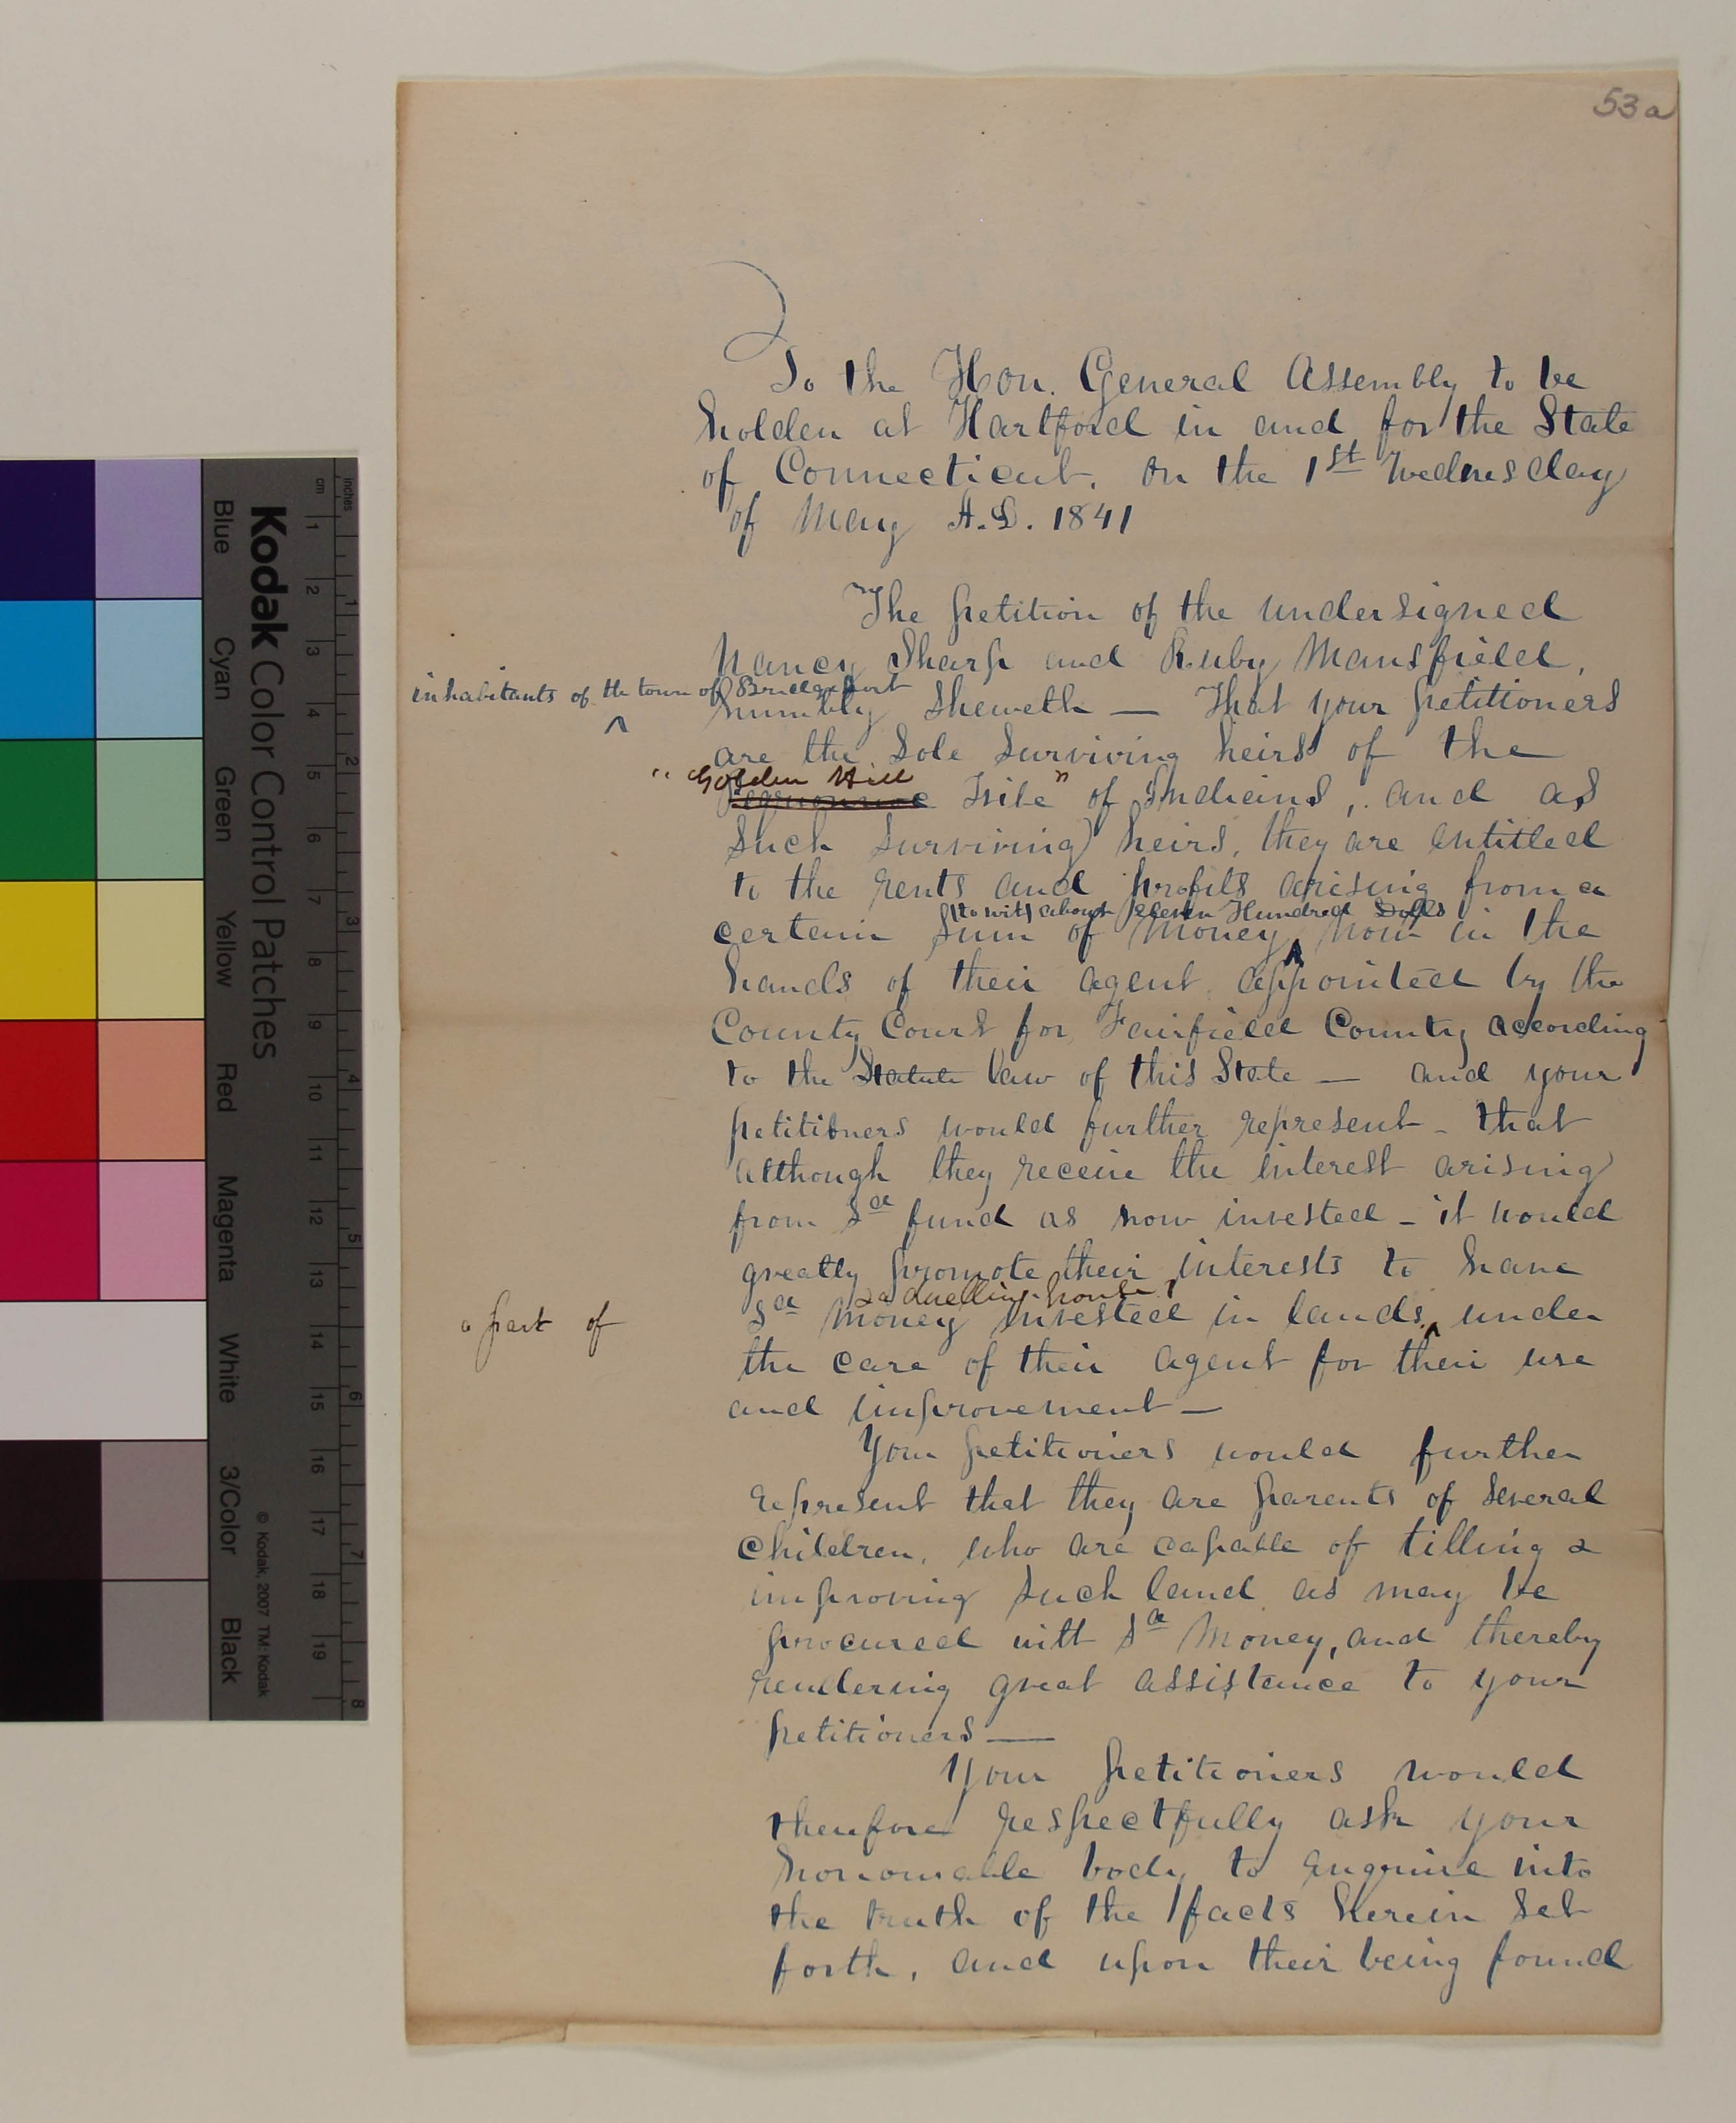 53a
To the Hon. General Assembly to be
holden at Hartford in and for the State
of Connecticut, on the 1st Wednesday
of May A.D. 1841
The petition of the undersigned
Nancy Sharp and Ruby Mansfield,
inhabitants of the town of Bridgeport
humbly sheweth — That your petitioners
are the sole surviving heirs of the
"Golden Hill
Tribe" of Indians, and as
such surviving heirs, they are entitled
to the rents and profits arising from a
(to wit) about eleven Hundred Dolls
certain sum of money ^ now in the
hands of their agent appointed by the
County Court for Fairfield County according
to the Statute law of this State — and your
petitioners would further represent - that
although they receive the interest arising
from sd fund as now invested - it would
greatly promote their interests to have
& a dwelling house
a part of
sd money invested in lands ^ under
the care of their agent for their use
and improvement —
Your petitioners would further
represent that they are parents of several
children, who are capable of tilling &
improving such land as may be
procured with sd money, and thereby
rendering great assistance to your
petitioners —
Your petitioners would
therefore respectfully ask your
honourable body to enquire into
the truth of the facts herein set
forth, and upon their being found
Kodak Color Control Patches
© Kodak, 2007 TM: Kodak
Blue Cyan Green Yellow Red Magenta White 3/Color Black
cm 1 2 3 4 5 6 7 8 9 10 11 12 13 14 15 16 17 18 19
inches 1 2 3 4 5 6 7 8